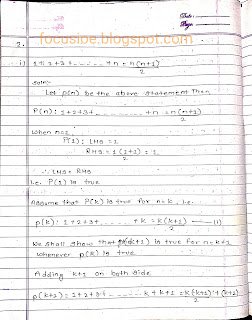 Date:
Page:
focusibe.blogspot.com
2.
i) 1+2+3+.......+n = n(n+1)/2
soln:-
Let p(n) be the above statement Then
P(n): 1+2+3+.......+n = n(n+1)/2
When n=1
P(1): LHS = 1
RHS = 1(1+1)/2 = 1
∴ LHS = RHS
i.e. P(1) is true
Assume that P(k) is true for n=k i.e.
p(k): 1+2+3+.......+k = k(k+1)/2 —(i)
We shall show that p(k+1) is true for n=k+1
whenever p(k) is true
Adding k+1 on both side
p(k+1): 1+2+3+.......k+k+1 = k(k+1)/2+(k+1)